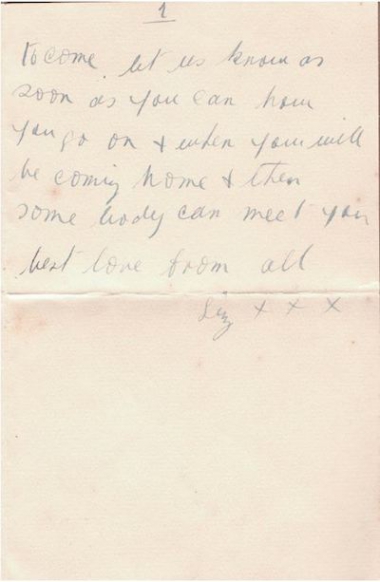 1
to come. let us know as
soon as you can how
you go on & when you will
be coming home & then
some body can meet you
best love from all
Liz x x x